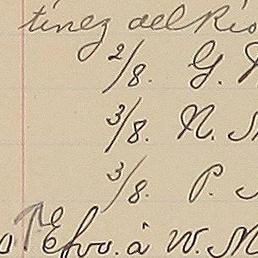 tinez del Rio
2/8. G.
3/8. N.
3/8. P.
Efvo. á W. M